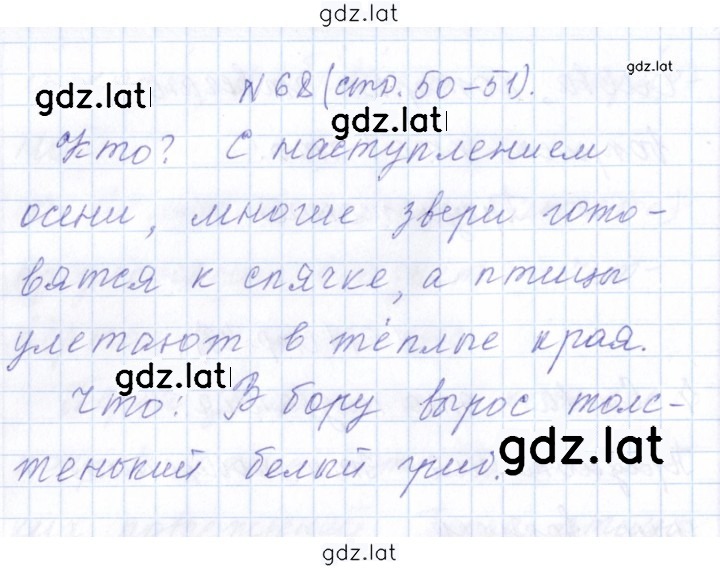 gdz.lat
gdz.lat
№ 68 (стр. 50-51).
gdz.lat
gdz.lat
Кто? С наступлением
осени, многие звери гото-
вятся к спячке, а птицы
улетают в тёплые края.
gdz.lat
Что: В бору вырос толс-
тенький белый гриб.
gdz.lat
gdz.lat